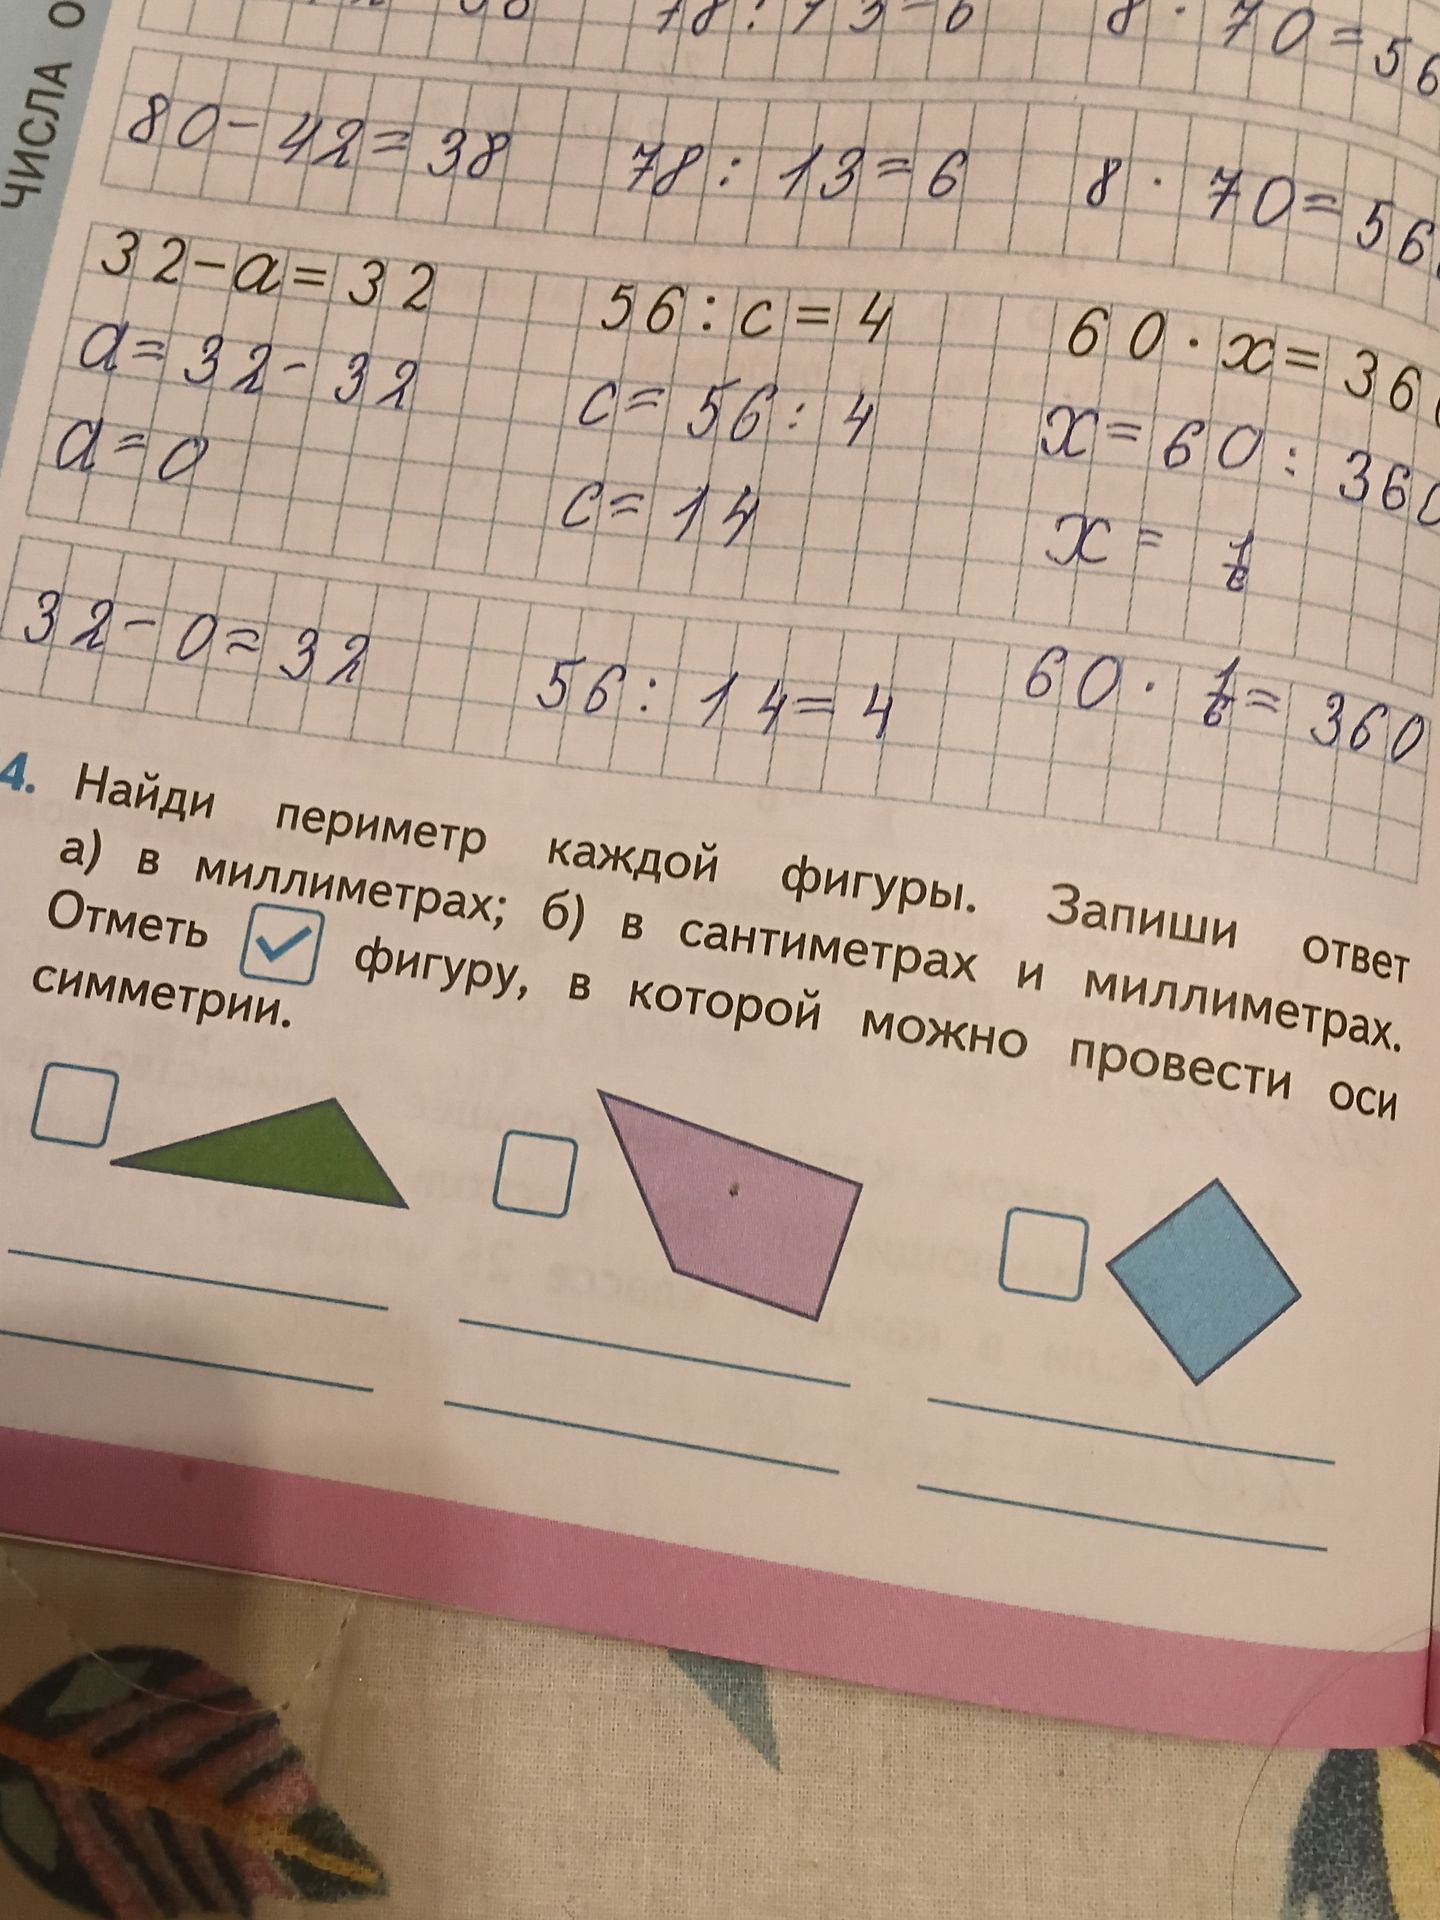 ЧИСЛА О
78 : 13 = 6
8 · 70 = 56
80 - 42 = 38
78 : 13 = 6
8 · 70 = 56
32 - а = 32
56 : с = 4
60 · х = 360
а = 32 - 32
с = 56 : 4
х = 60 : 360
а = 0
с = 14
х = 1/6
32 - 0 = 32
56 : 14 = 4
60 · 1/6 = 360
4. Найди периметр каждой фигуры. Запиши ответ
а) в миллиметрах; б) в сантиметрах и миллиметрах.
Отметь ✓ фигуру, в которой можно провести оси
симметрии.